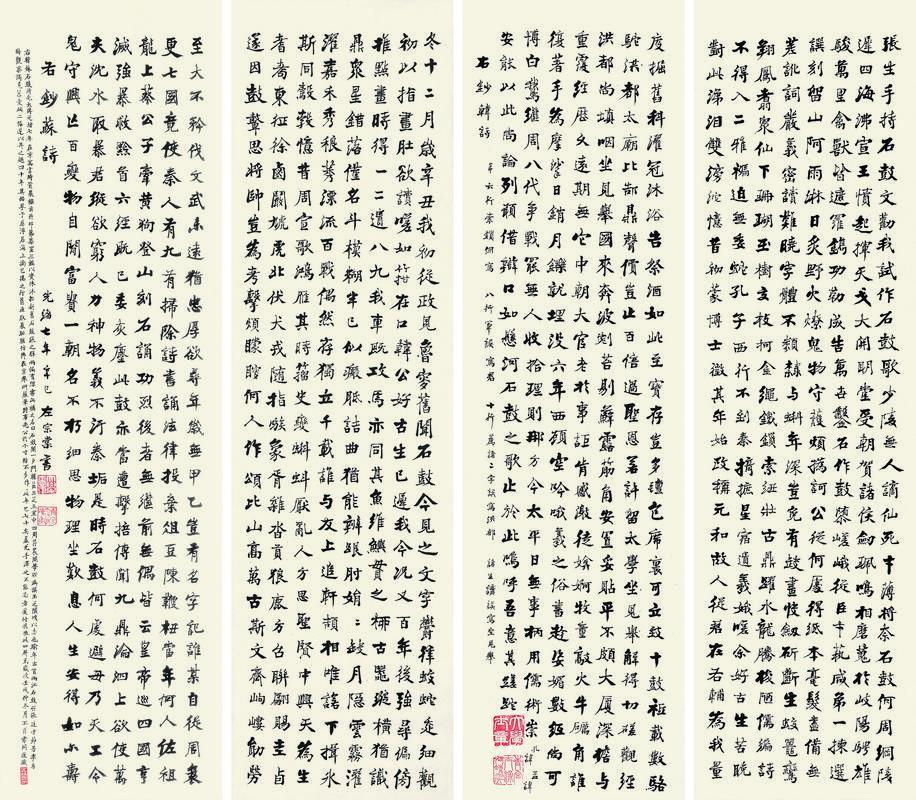 張生手持石鼓文勸我試作石鼓歌少陵無人謫仙死才薄將奈石鼓何周綱陵
遲四海沸宣王憤起揮天戈大開明堂受朝賀諸侯劍珮鳴相磨蒐於岐陽騁雄
駿萬里禽獸皆遮羅鐫功勒成告萬世鑿石作鼓隳嵯峨從臣才藝咸第一揀選
譔刻留山阿雨淋日炙野火燎鬼物守護煩撝訶公從何處得紙本毫髮盡備無
差訛詞嚴義密讀難曉字體不類隸與蝌年深豈免有缺畫快劍斫斷生蛟鼉鸞
翔鳳翥衆仙下珊瑚玉樹交枝柯金繩鐵鎖索紐壯古鼎躍水龍騰梭陋儒編詩
不得入二雅褊迫無委蛇孔子西行不到秦掎摭星宿遺羲娥嗟余好古生苦晚
對此涕泪雙滂沱憶昔初蒙博士徵其年始改稱元和故人從軍在右輔為我
度掘舊科濯冠沐浴告祭酒如此至寶存豈多氊包席裹可立致十鼓秪載數駱
駝洪都太廟比郜鼎聲價豈止百倍過聖恩若許留太學坐見舉解得切磋觀經
洪都尚填咽坐見舉國來奔波剜苔剔蘚露節角安置妥貼平不頗大廈深簷與
重覆經歷久遠期無佗中朝大官老於事詎肯感激徒媕婀牧童敲火牛礪角誰
復著手為摩挲日銷月鑠就埋沒六年西顧空吟哦羲之俗書趁姿媚數紙尚可
博白鵞繼周八代爭戰罷無人收拾理則那方今太平日無事柄用儒術崇
安能以此尚論列願借辯口如懸河石鼓之歌止於此嗚呼吾意其蹉跎
右鈔韓詩 十行薦諸二字誤寫洪都 諸生講誤寫坐見舉
冬十二月歲辛丑我初從政見魯叟舊聞石鼓今見之文字鬱律蛟蛇走細觀
初以指畫肚欲讀嗟如箝在口韓公好古生已遲我今況又百年後強尋偏傍
推點畫時得一二遺八九我車既攻馬亦同其魚維鱮貫之柳古器縱橫猶識
鼎衆星錯落僅名斗模糊半已似瘢胝詰曲猶能辨跟肘娟娟缺月隱雲霧濯
濯嘉禾秀稂莠漂流百戰偶然存獨立千載誰與友上追軒頡相唯諾下揖冰
斯同鷇鷇憶昔周宣歌鴻雁其時籀史變蝌蚪厭亂人方思聖賢中興天為生
耆耇東征徐虜闞虓虎北伏犬戎隨指嗾象胥雜沓貢狼鹿方召聯翩賜圭卣
遂因鼓鼙思將帥豈為考擊煩矇瞍何人作頌比山高萬古斯文齊岣嶁勳勞
至大不矜伐文武未遠猶忠厚欲尋年歲無甲乙豈有名字記誰某自從周衰
更七國竟使秦人有九有掃除詩書誦法律投棄俎豆陳鞭杻當年何人佐祖
龍上蔡公子牽黃狗登山刻石誦功烈後者無繼前無偶皆云皇帝巡四國烹
滅強暴救黔首六經既已委灰塵此鼓亦當遭擊掊傳聞九鼎淪泗上欲使萬
夫沈水取暴君縱欲窮人力神物義不汙秦垢是時石鼓何處避毋乃天工令
鬼守興亡百變物自閒富貴一朝名不朽細思物理坐歎息人生安得如尒壽
右鈔蘇詩 光緒七年辛巳左宗棠書